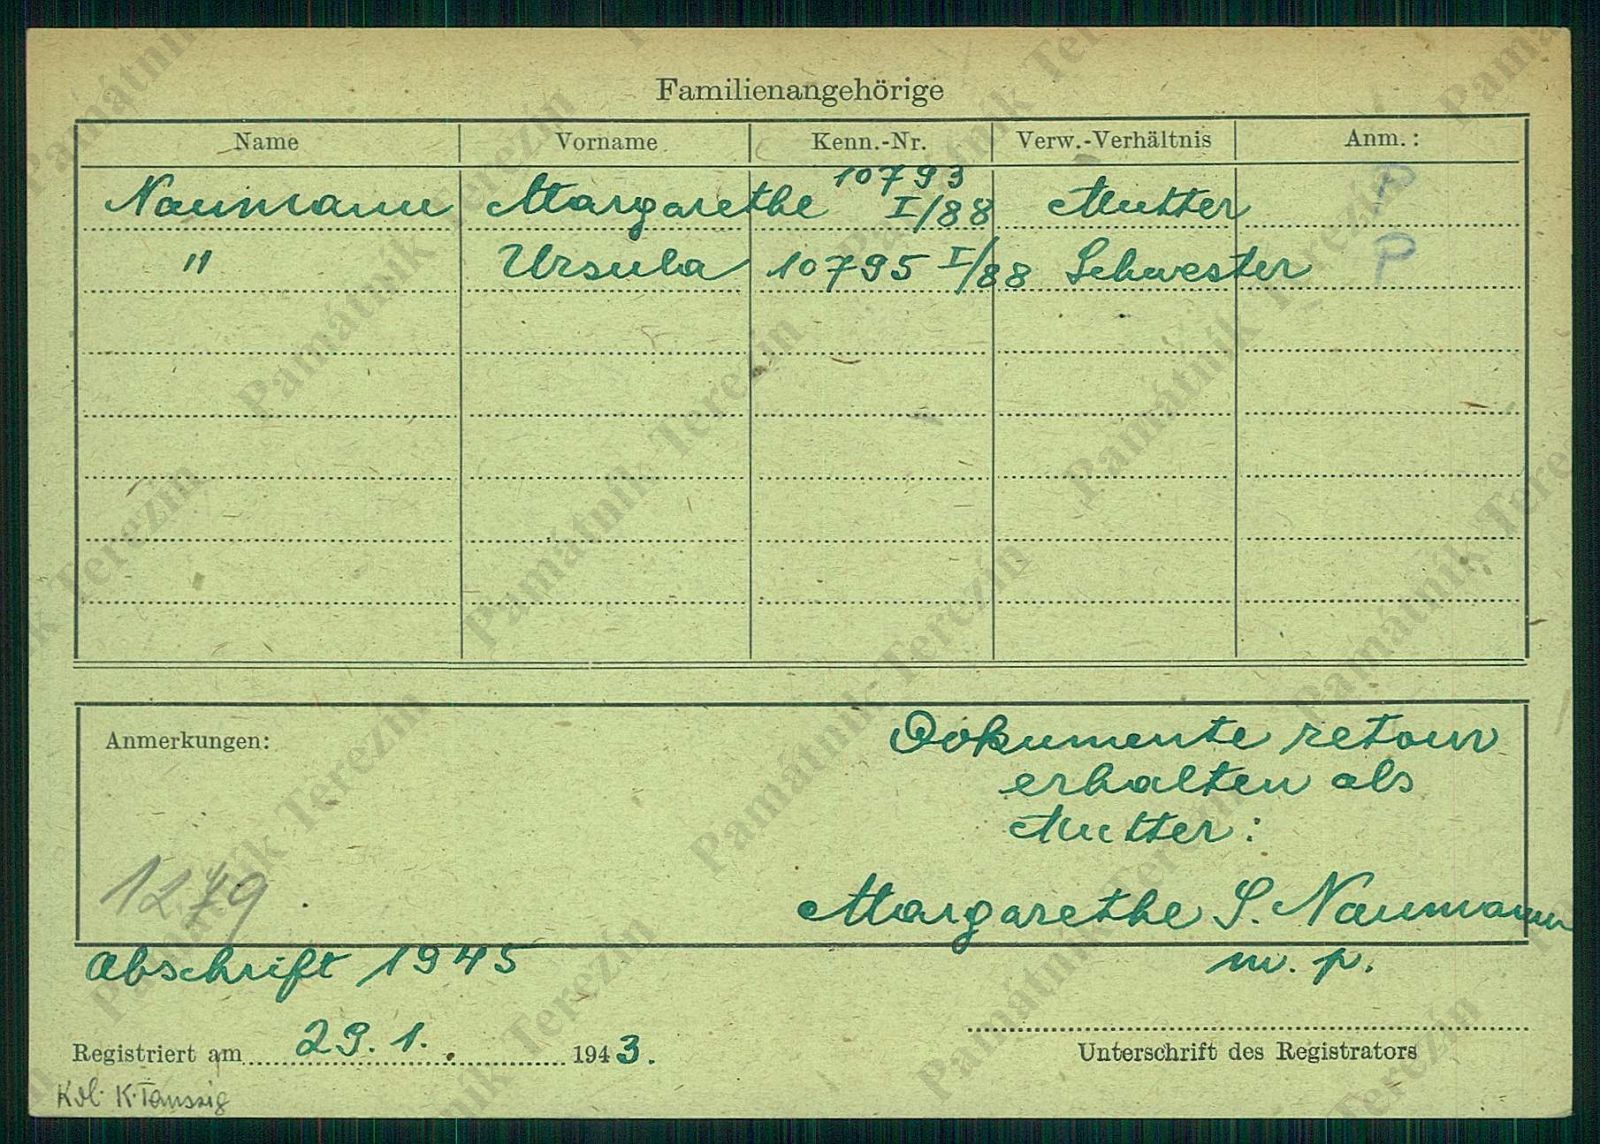 Familienangehörige
Name Vorname Kenn.-Nr. Verw.-Verhältnis Anm.:
Naumann Margarethe 10793 I/88 Mutter P
" Ursula 10795 I/88 Schwester P
Anmerkungen:
Dokumente retour
erhalten als
Mutter:
1279
Margarethe S. Naumann
m. p.
Abschrift 1945
Registriert am 29. 1. 1943.
Unterschrift des Registrators
K. Taussig
Památník Terezín